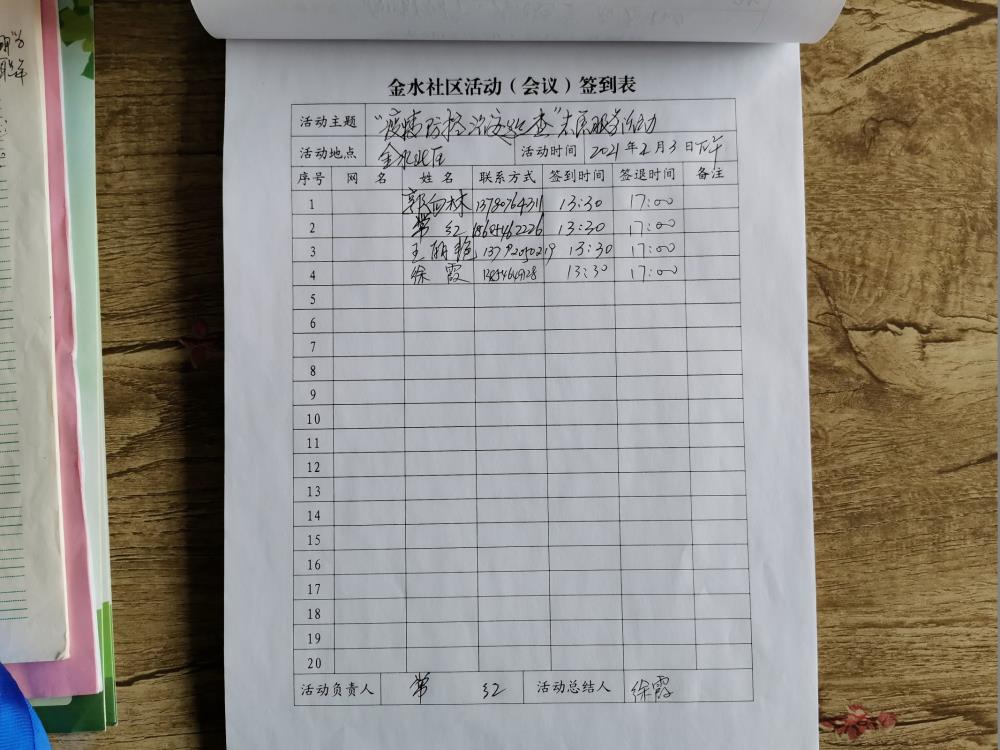 金水社区活动（会议）签到表
活动主题 "疫情防控 查"志愿服务活动
活动地点 金水社区 活动时间 2021年2月3日下午
序号 网 名 姓 名 联系方式 签到时间 签退时间 备注
1 13:30 17:00
2 常 红 13:30 17:00
3 王丽艳 13:30 17:00
4 徐 霞 13:30 17:00
5
6
7
8
9
10
11
12
13
14
15
16
17
18
19
20
活动负责人 常 红 活动总结人 徐霞